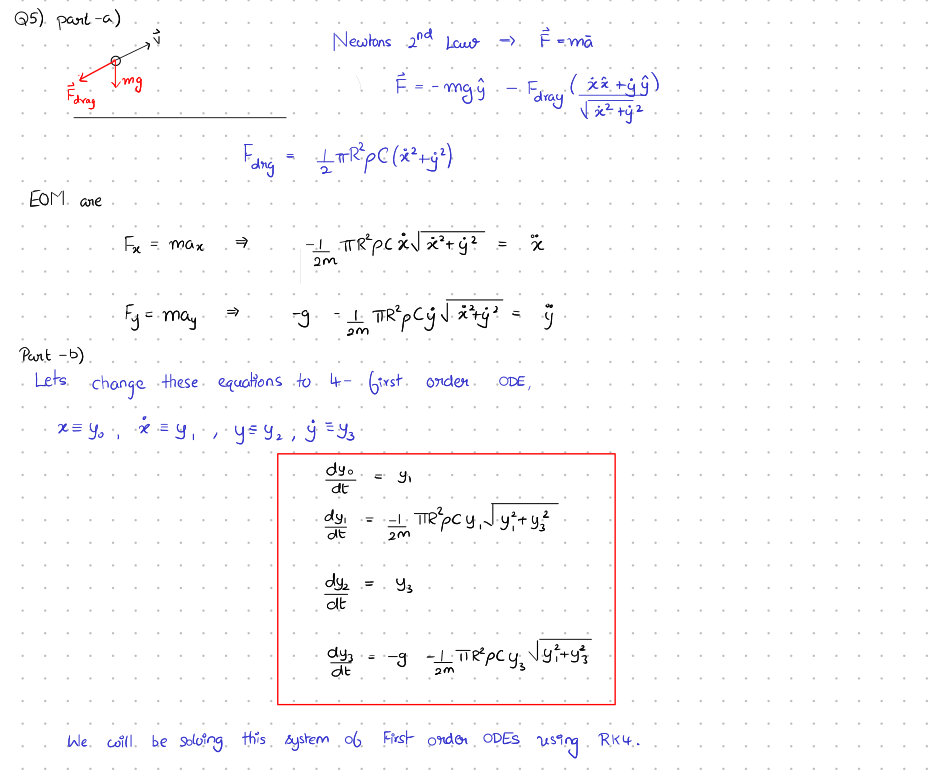 Q5) part-a)
V⃗
mg
F⃗drag
Newtons 2nd Law → F⃗ = mā
F⃗ = - mg ŷ - Fdrag (ẋx̂ + ẏŷ / √ẋ²+ẏ²)
Fdrg = 1/2 πR²ρC(ẋ²+ẏ²)
EOM are
Fx = max ⇒ -1/2m πR²ρCẋ√ẋ²+ẏ² = ẍ
Fy = may ⇒ -g -1/2m πR²ρCẏ√ẋ²+ẏ² = ÿ
Part-b)
Lets change these equations to 4- first order ODE,
x≡y₀, ẋ≡y₁, y≡y₂, ẏ≡y₃
dy₀/dt = y₁
dy₁/dt = -1/2m πR²ρCy₁√y₁²+y₃²
dy₂/dt = y₃
dy₃/dt = -g -1/2m πR²ρCy₃√y₁²+y₃²
We will be solving this system of First order ODEs using RK4.